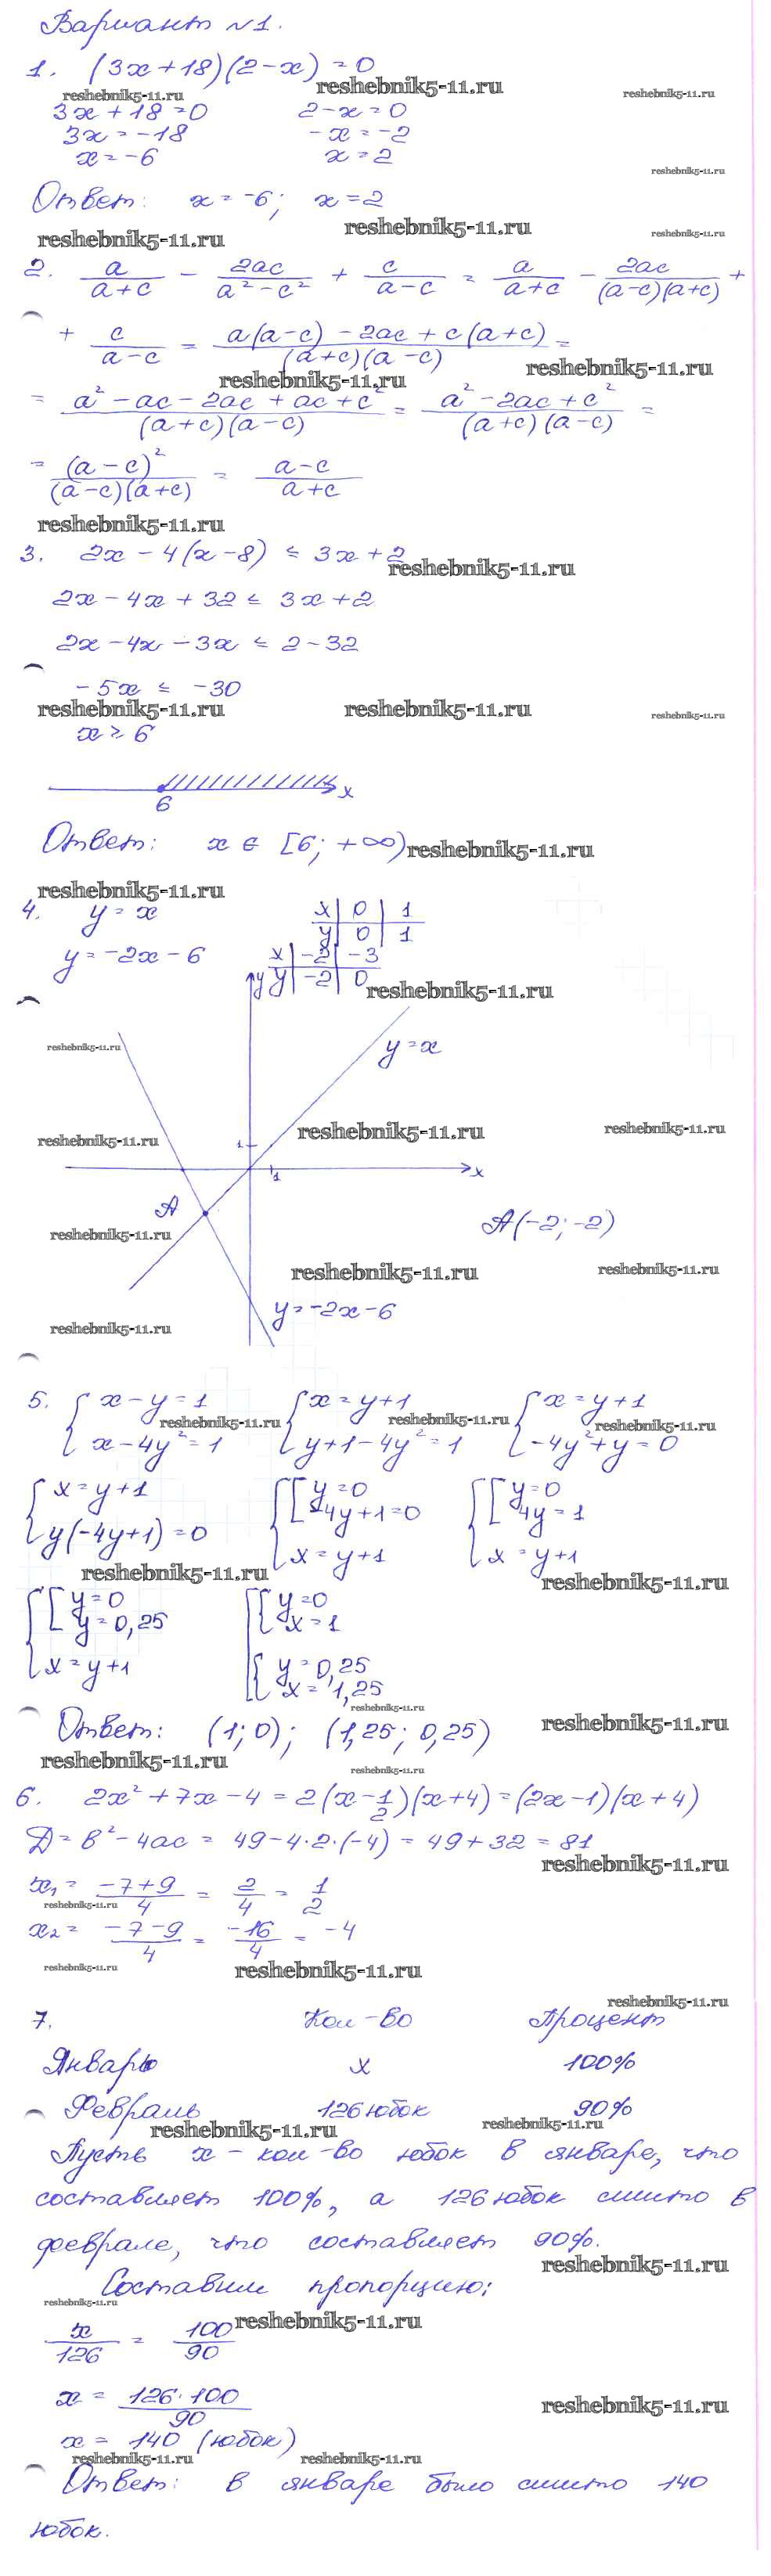 Вариант №1.
1. (3x+18)(2-x)=0
reshebnik5-11.ru reshebnik5-11.ru reshebnik5-11.ru
3x+18=0 2-x=0
3x=-18 -x=-2
x=-6 x=2
reshebnik5-11.ru
Ответ: x=-6; x=2
reshebnik5-11.ru reshebnik5-11.ru reshebnik5-11.ru
2. a/(a+c) - 2ac/(a²-c²) + c/(a-c) = a/(a+c) - 2ac/((a-c)(a+c)) +
+ c/(a-c) = (a(a-c)-2ac+c(a+c))/((a+c)(a-c)) =
reshebnik5-11.ru reshebnik5-11.ru
= (a²-ac-2ac+ac+c²)/((a+c)(a-c)) = (a²-2ac+c²)/((a+c)(a-c)) =
= (a-c)²/((a-c)(a+c)) = (a-c)/(a+c)
reshebnik5-11.ru
3. 2x-4(x-8) ≤ 3x+2
reshebnik5-11.ru
2x-4x+32 ≤ 3x+2
2x-4x-3x ≤ 2-32
-5x ≤ -30
reshebnik5-11.ru reshebnik5-11.ru reshebnik5-11.ru
x ≥ 6
6 x
Ответ: x ∈ [6; +∞) reshebnik5-11.ru
reshebnik5-11.ru
4. y=x x 0 1
y 0 1
y=-2x-6 x -2 -3
y y -2 0
reshebnik5-11.ru
reshebnik5-11.ru y=x
reshebnik5-11.ru 1 reshebnik5-11.ru reshebnik5-11.ru
1 x
A
A(-2;-2)
reshebnik5-11.ru
reshebnik5-11.ru reshebnik5-11.ru
y=-2x-6
reshebnik5-11.ru
5. { x-y=1 { x=y+1 { x=y+1
reshebnik5-11.ru reshebnik5-11.ru reshebnik5-11.ru
x-4y²=1 y+1-4y²=1 -4y²+y=0
{ x=y+1 { [ y=0 { [ y=0
y(-4y+1)=0 -4y+1=0 4y=1
x=y+1 x=y+1
reshebnik5-11.ru reshebnik5-11.ru
{ [ y=0 [ { y=0
y=0,25 x=1
x=y+1 { y=0,25
x=1,25
reshebnik5-11.ru
Ответ: (1;0); (1,25; 0,25) reshebnik5-11.ru
reshebnik5-11.ru reshebnik5-11.ru
6. 2x²+7x-4=2(x-1/2)(x+4)=(2x-1)(x+4)
D=b²-4ac=49-4·2·(-4)=49+32=81
reshebnik5-11.ru
x₁ = (-7+9)/4 = 2/4 = 1/2
reshebnik5-11.ru
x₂ = (-7-9)/4 = -16/4 = -4
reshebnik5-11.ru reshebnik5-11.ru
reshebnik5-11.ru
7. Кол-во Процент
Январь x 100%
Февраль 126 юбок 90%
reshebnik5-11.ru reshebnik5-11.ru
Пусть x - кол-во юбок в январе, что
составляет 100%, а 126 юбок сшито в
феврале, что составляет 90%.
reshebnik5-11.ru
Составим пропорцию:
reshebnik5-11.ru
x/126 = 100/90
reshebnik5-11.ru
x = 126·100/90
reshebnik5-11.ru
x = 140 (юбок)
reshebnik5-11.ru reshebnik5-11.ru
Ответ: в январе было сшито 140
юбок.